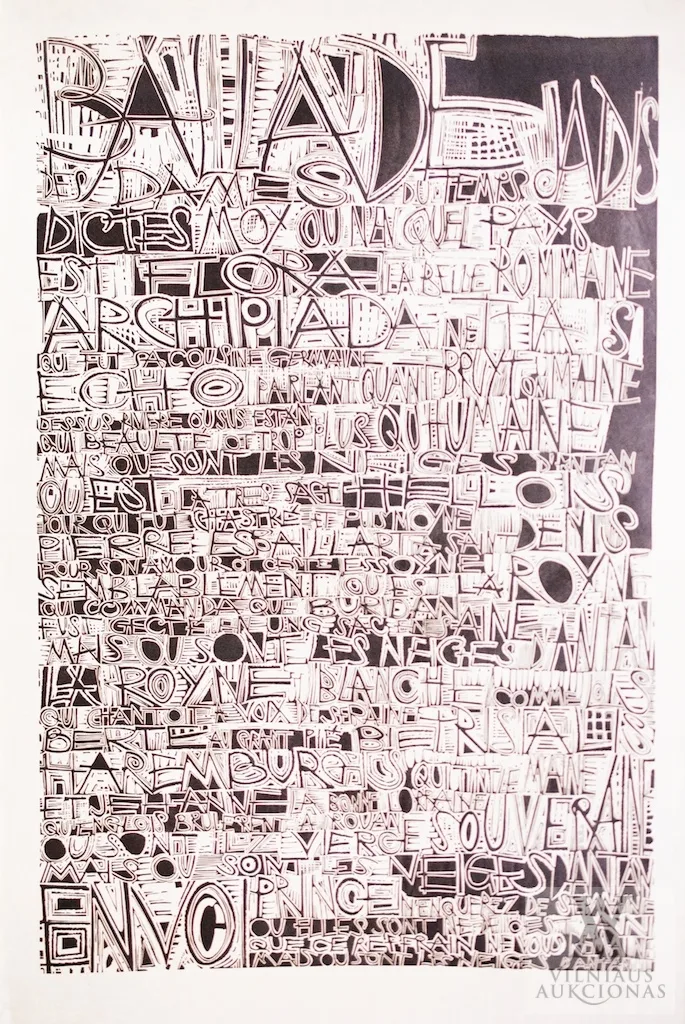 BALLADE
DES DAMES DU TEMPS JADIS
DICTES MOY OU N'EN QUEL PAYS
EST FLORA LA BELLE ROMMAINE
ARCHIPIADA NE THAIS
QUI FUT SA COUSINE GERMAINE
ECHO PARLANT QUANT BRUYT ON MAINE
DESSUS RIVIERE OU SUS ESTAN
QUI BEAULTE OT TROP PLUS QU HUMAINE
MAIS OU SONT LES NEIGES D'ANTAN
OU EST LA TRES SAGE HELLOIS
POUR QUI FU CHASTRE PUIS MOYNE
PIERRE ESBAILLART A SAINT DENIS
POUR SON AMOUR OT CESTE ESSOYNE
SEMBLABLEMENT OU EST LA ROYNE
QUI COMMANDA QUE BURIDAN
FUST GECTE EN UNG SAC
MAIS OU SONT LES NEIGES D'ANTAN
LA ROYNE BLANCHE COMME LIS
QUI CHANTOIT A VOIX DE SERAINE
BERTE AU GRANT PIE BIETRIS ALIS
HAREMBURGIS QUI TINT LE MAINE
ET JEHANNE LA BONNE LORAINE
QU'ENGLOIS BRULERENT A ROUAN
OU SONT ILZ VIERGE SOUVERAINE
MAIS OU SONT LES NEIGES D'ANTAN
ENVOI PRINCE N'ENQUEREZ DE SEMAINE
OU ELLES SONT NE DE CEST AN
QUE CE REFRAIN NE VOUS REMAINE
MAIS OU SONT LES NEIGES D'ANTAN
VILNIAUS
AUKCIONAS